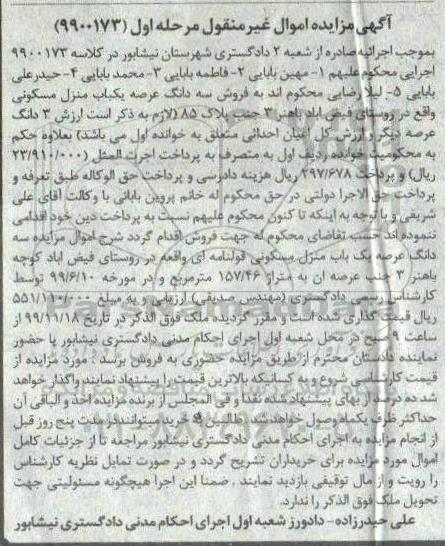 آگهی مزایده اموال غیر منقول مرحله اول (۹۹۰۰۱۷۳)
بموجب اجرائیه صادره از شعبه ۲ دادگستری شهرستان نیشابور در کلاسه ۹۹۰۰۱۷۳
اجرایی محکوم علیهم ۱- مهین بابایی ۲- فاطمه بابایی ۳- محمد بابایی ۴- حیدر علی
بابایی ۵- لیلا رضایی محکوم اند به فروش سه دانگ عرصه یکباب منزل مسکونی
واقع در روستای فیض اباد باهنر ۳ جنب پلاک ۸۵ (لازم به ذکر است ارزش ۳ دانگ
عرصه دیگر و ارزش کل اعیان احداثی متعلق به خوانده اول می باشد) بعلاوه حکم
به محکومیت خوانده ردیف اول به متصرف به پرداخت اجرت المثل (۲۳/۹۱۰/۰۰۰
ریال) و پرداخت ۲۹۷/۶۷۸ ریال هزینه دادرسی و پرداخت حق الوکاله طبق تعرفه و
پرداخت حق الاجرا دولتی در حق محکوم له خانم پروین بابانی با وکالت آقای علی
شریفی و با توجه به اینکه تا کنون محکوم علیهم نسبت به پرداخت دین خود اقدامی
ننموده اند حسب تقاضای محکوم له جهت فروش اقدام گردد شرح اموال مزایده سه
دانگ عرصه یک باب منزل مسکونی قولنامه ای واقعه در روستای فیض اباد کوچه
باهنر ۳ جنب عرصه ان به متراژ ۱۵۷/۴۶ مترمربع و در مورخه ۹۹/۶/۱۰ توسط
کارشناس رسمی دادگستری (مهندس صدیقی) ارزیابی و به مبلغ ۵۵۱/۱۱۰/۰۰۰
ریال قیمت گذاری شده است و مقرر گردیده ملک فوق الذکر در تاریخ ۹۹/۱۱/۱۸ از
ساعت ۹ صبح در محل شعبه اول اجرای احکام مدنی دادگستری نیشابور با حضور
نماینده دادستان محترم از طریق مزایده حضوری به فروش برسد. مورد مزایده از
قیمت کارشناسی شروع و به کسانیکه بالاترین قیمت را پیشنهاد نمایند واگذار خواهد
شد ده درصد از بهای پیشنهاد شده نقدا و فی المجلس از برنده مزایده اخذ و الباقی آن
حداکثر ظرف یکماه وصول خواهد شد. طالبین خرید میتوانند در مدت پنج روز قبل
از انجام مزایده به اجرای احکام مدنی دادگستری نیشابور مراجعه تا از جزئیات کامل
اموال مورد مزایده برای خریداران تشریح گردد و در صورت تمایل نظریه کارشناس
را رویت و از مال توقیفی بازدید نمایند. ضمنا این اجرا هیچگونه مسئولیتی جهت
تحویل ملک فوق الذکر را ندارد.
علی حیدرزاده - دادورز شعبه اول اجرای احکام مدنی دادگستری نیشابور